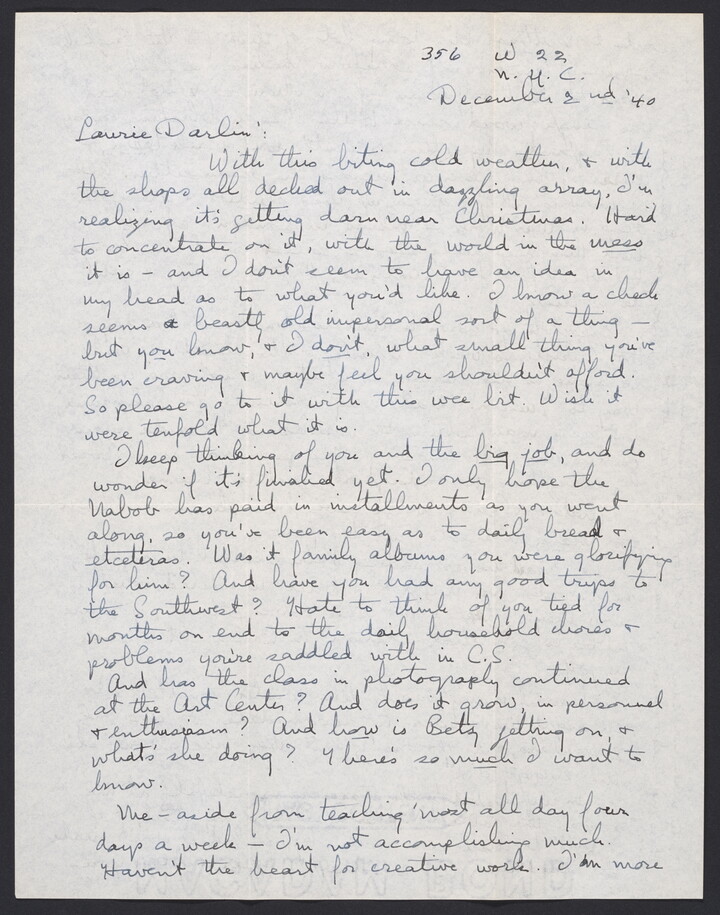 356 W 22
N.Y.C.
December 2nd '40
Laurie Darlin':
With this biting cold weather, + with
the shops all decked out in dazzling array, I'm
realizing it's getting darn near Christmas. Hard
to concentrate on it, with the world in the mess
it is – and I don't seem to have an idea in
my head as to what you'd like. I know a check
seems a beastly old impersonal sort of a thing –
but you know, + I don't, what small thing you've
been craving + maybe feel you shouldn't afford.
So please go to it with this wee bit. Wish it
were tenfold what it is.
I keep thinking of you and the big job, and do
wonder if it's finalied yet. I only hope the
Nabob has paid in installments as you went
along, so you've been easy as to daily bread +
etceteras. Was it family albums you were glorifying
for him? And have you had any good trips to
the Southwest? Hate to think of you tied for
months on end to the daily household chores +
problems you're saddled with in C.S.
And has the class in photography continued
at the Art Center? And does it grow, in personnel
+ enthusiasm? And how is Betsy getting on, +
what's she doing? There's so much I want to
know.
Me – aside from teaching 'most all day four
days a week – I'm not accomplishing much.
Haven't the heart for creative work. I'm more